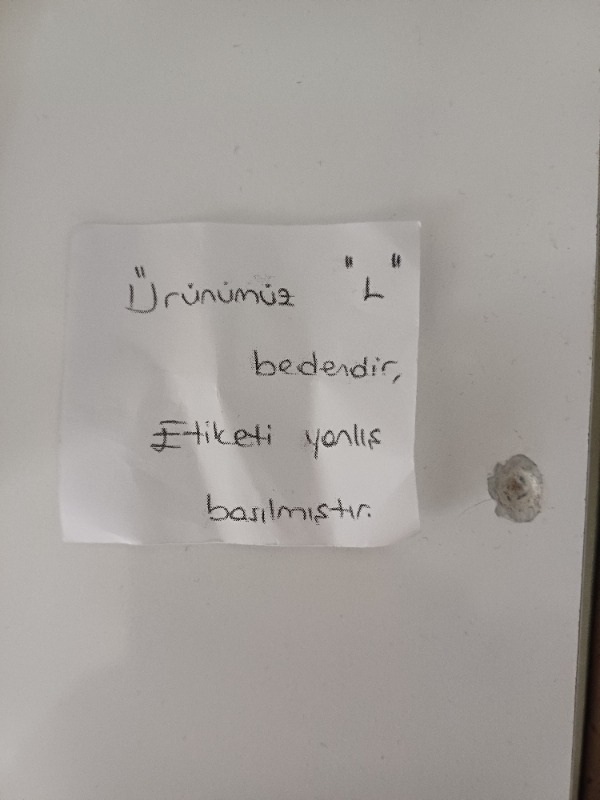 Ürünümüz "L"
bedendir,
Etiketi yanlış
basılmıştır.